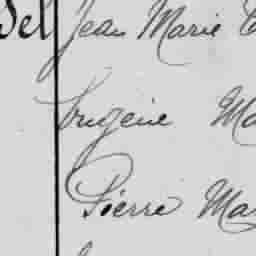 del Jean Marie
Eugène Ma
Pierre Mar